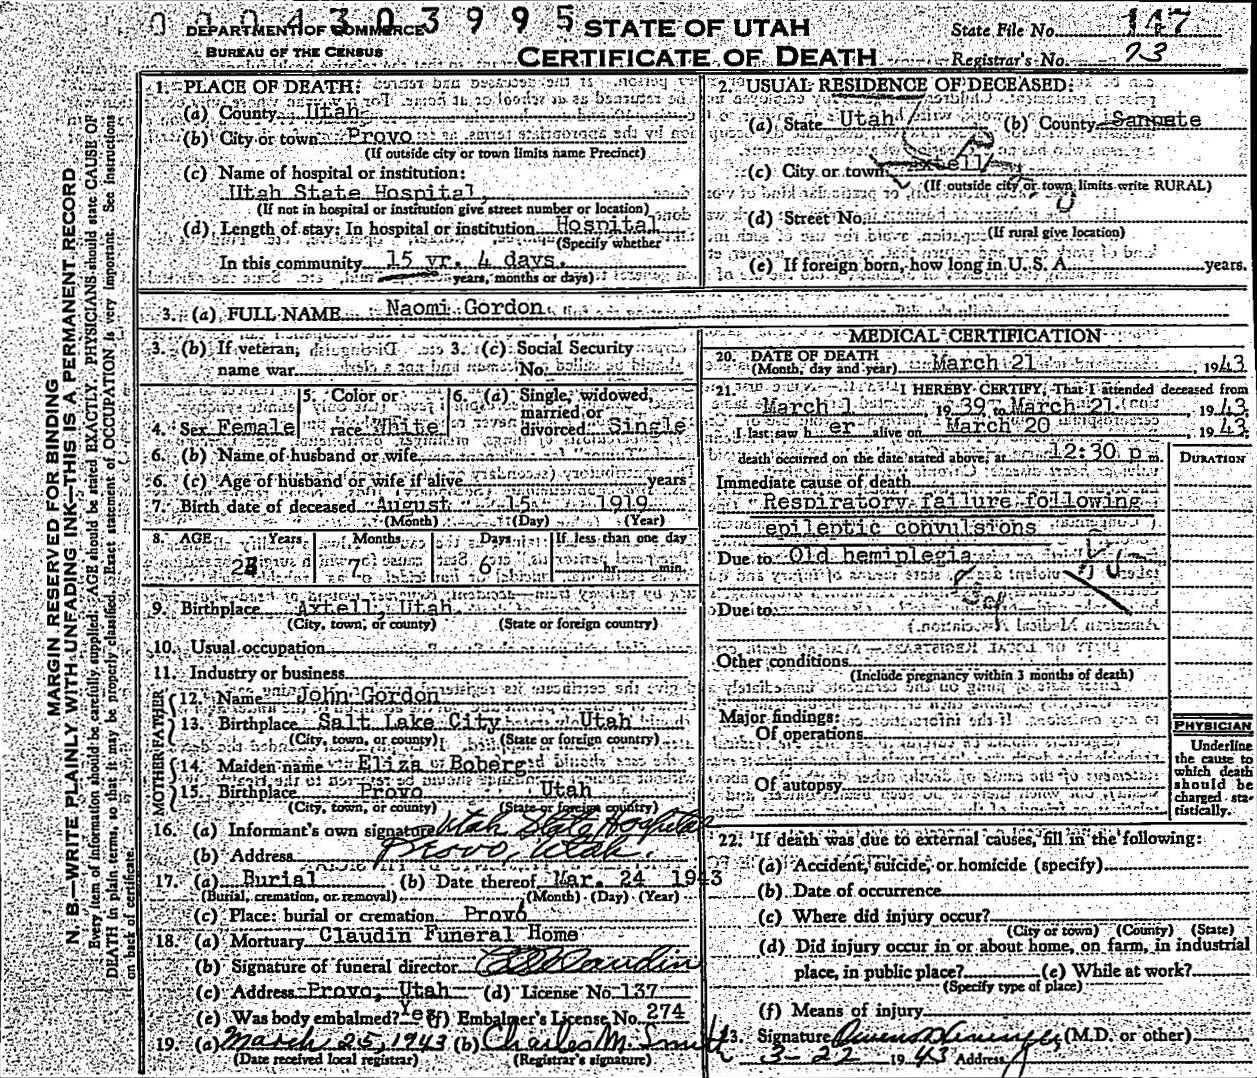 0 0 0 4 3 0 3 9 9 5
DEPARTMENT OF COMMERCE
BUREAU OF THE CENSUS
STATE OF UTAH
CERTIFICATE OF DEATH
State File No. 147
Registrar's No. 73
MARGIN RESERVED FOR BINDING
N. B.—WRITE PLAINLY WITH UNFADING INK—THIS IS A PERMANENT RECORD
Every item of information should be carefully supplied. AGE should be stated EXACTLY. PHYSICIANS should state CAUSE OF
DEATH in plain terms, so that it may be properly classified. Exact statement of OCCUPATION is very important. See instructions
on back of certificate.
1. PLACE OF DEATH:
(a) County Utah
(b) City or town Provo
(If outside city or town limits name Precinct)
(c) Name of hospital or institution:
Utah State Hospital,
(If not in hospital or institution give street number or location)
(d) Length of stay: In hospital or institution Hospital
(Specify whether
In this community 15 yr. 4 days.
years, months or days)
2. USUAL RESIDENCE OF DECEASED:
(a) State Utah (b) County Sanpete
(c) City or town Axtell
(If outside city or town limits write RURAL)
(d) Street No.
(If rural give location)
(e) If foreign born, how long in U. S. A. years.
3. (a) FULL NAME Naomi Gordon
3. (b) If veteran, name war 3. (c) Social Security No.
4. Sex Female
5. Color or race White
6. (a) Single, widowed, married or divorced Single
6. (b) Name of husband or wife
6. (c) Age of husband or wife if alive years
7. Birth date of deceased August 15 1919
(Month) (Day) (Year)
8. AGE Years Months Days If less than one day
23 7 6 hr. min.
9. Birthplace Axtell, Utah
(City, town, or county) (State or foreign country)
10. Usual occupation
11. Industry or business
FATHER
12. Name John Gordon
13. Birthplace Salt Lake City Utah
(City, town, or county) (State or foreign country)
MOTHER
14. Maiden name Eliza Boberg
15. Birthplace Provo Utah
(City, town, or county) (State or foreign country)
16. (a) Informant's own signature Utah State Hospital
(b) Address Provo, Utah.
17. (a) Burial (b) Date thereof Mar. 24 1943
(Burial, cremation, or removal) (Month) (Day) (Year)
(c) Place: burial or cremation Provo
18. (a) Mortuary Claudin Funeral Home
(b) Signature of funeral director Claudin
(c) Address Provo, Utah (d) License No. 137
(e) Was body embalmed? Yes (f) Embalmer's License No. 274
19. (a) March 25, 1943 (b) Charles M. Smith
(Date received local registrar) (Registrar's signature)
MEDICAL CERTIFICATION
20. DATE OF DEATH
(Month, day and year) March 21, 1943
21. I HEREBY CERTIFY, That I attended deceased from
March 1, 1939, to March 21, 1943
I last saw her alive on March 20, 1943;
death occurred on the date stated above, at 12:30 p m.
DURATION
Immediate cause of death
Respiratory failure following
epileptic convulsions
Due to Old hemiplegia
Due to
Other conditions
(Include pregnancy within 3 months of death)
Major findings:
Of operations
Of autopsy
PHYSICIAN
Underline
the cause to
which death
should be
charged sta-
tistically.
22. If death was due to external causes, fill in the following:
(a) Accident, suicide, or homicide (specify)
(b) Date of occurrence
(c) Where did injury occur?
(City or town) (County) (State)
(d) Did injury occur in or about home, on farm, in industrial
place, in public place? (e) While at work?
(Specify type of place)
(f) Means of injury
23. Signature (M.D. or other)
3-22 1943 Address